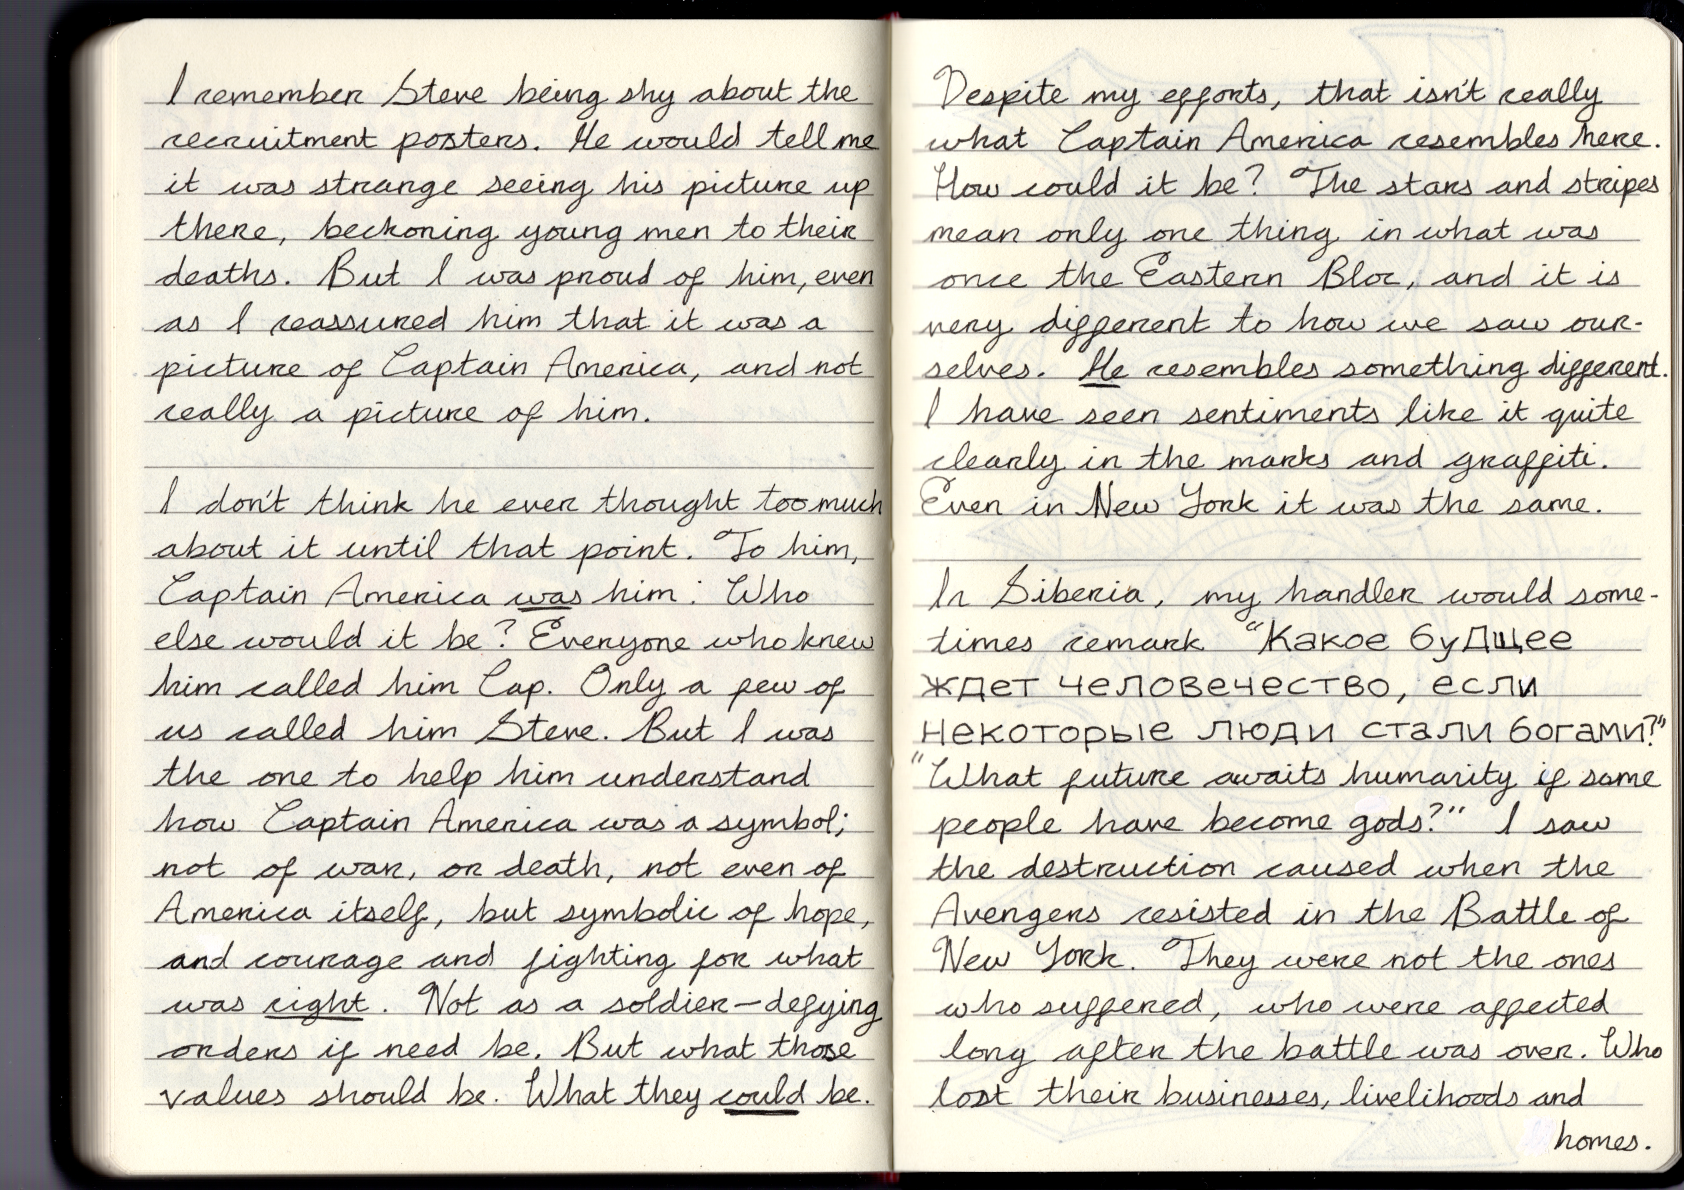 I remember Steve being shy about the
recruitment posters. He would tell me
it was strange seeing his picture up
there, beckoning young men to their
deaths. But I was proud of him, even
as I reassured him that it was a
picture of Captain America, and not
really a picture of him.
I don't think he ever thought too much
about it until that point. To him,
Captain America was him: Who
else would it be? Everyone who knew
him called him Cap. Only a few of
us called him Steve. But I was
the one to help him understand
how Captain America was a symbol;
not of war, or death, not even of
America itself, but symbolic of hope,
and courage and fighting for what
was right. Not as a soldier—defying
orders if need be. But what those
values should be. What they could be.
Despite my efforts, that isn't really
what Captain America resembles here.
How could it be? The stars and stripes
mean only one thing in what was
once the Eastern Bloc, and it is
very different to how we saw our-
selves. He resembles something different.
I have seen sentiments like it quite
clearly in the marks and graffiti.
Even in New York it was the same.
In Siberia, my handler would some-
times remark "Какое будщее
ждет человечество, если
некоторые люди стали богами?"
"What future awaits humanity if some
people have become gods?" I saw
the destruction caused when the
Avengers resisted in the Battle of
New York. They were not the ones
who suffered, who were affected
long after the battle was over. Who
lost their businesses, livelihoods and
homes.